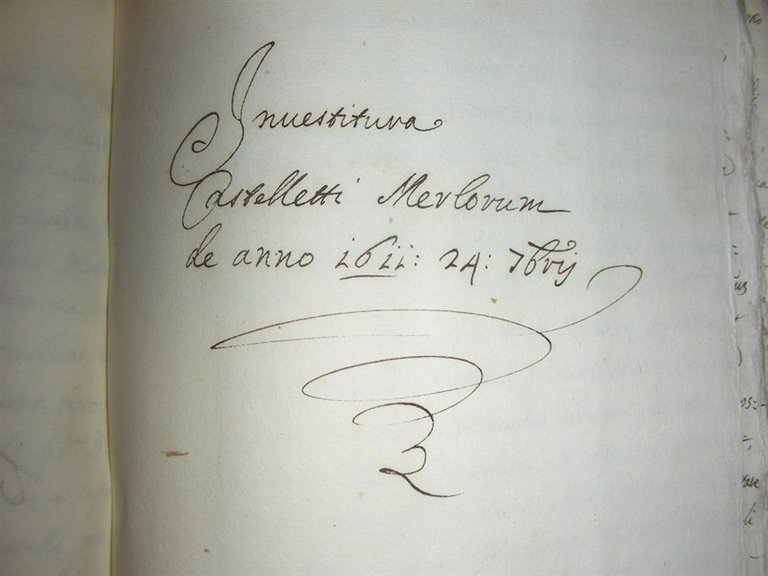 Inuestitura
Castelletti Merlorum
de anno 1611: 24: 7bris